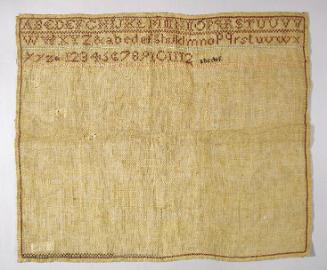 ABCDEFGHIJKLMNOPQRSTUVV
WXYZ&abcdefghijklmnopqrstuvwx
xyz 123456789101112 abcdef